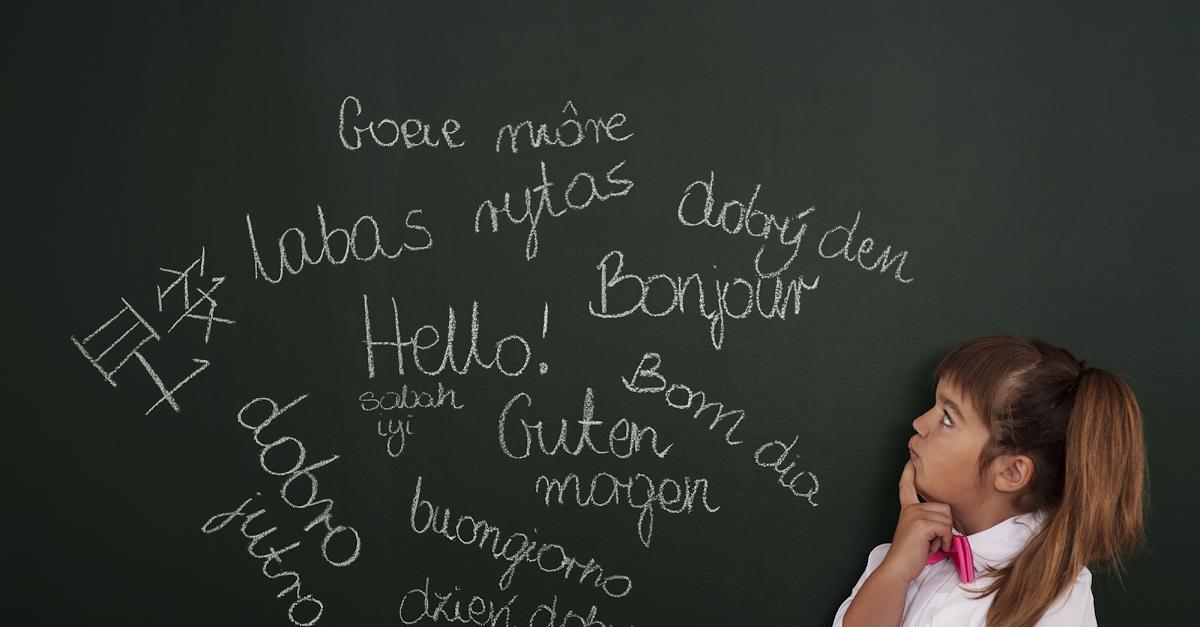 Goeie môre
labas rytas
dobrý den
Bonjour
Hello!
sabah
iyi
Bom dia
Guten
morgen
dobro
jutro
buongiorno
dzień